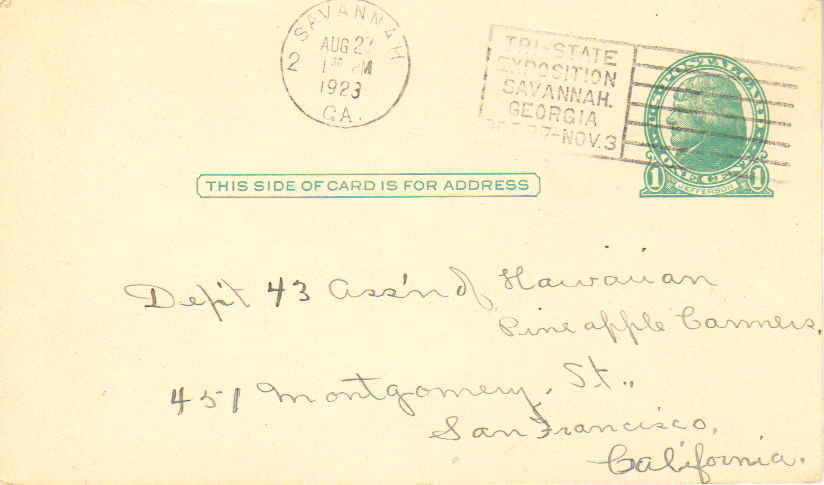 SAVANNAH
AUG 27
1 PM
1923
GA.
2
TRI-STATE
EXPOSITION
SAVANNAH.
GEORGIA
OCT.27-NOV.3
U.S. POSTAL CARD
ONE CENT
1 JEFFERSON 1
THIS SIDE OF CARD IS FOR ADDRESS
Dep't 43 Ass'n of Hawaiian
Pineapple Canners,
451 Montgomery, St.,
San Francisco,
California.